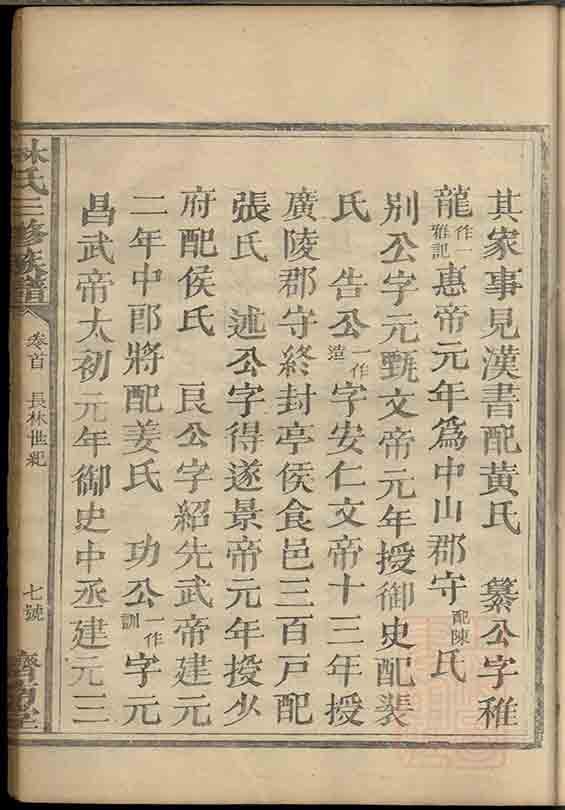 其家事見漢書配黃氏　纂公字稚
龍一作雅記惠帝元年爲中山郡守配陳氏
別公字元甄文帝元年授御史配裴
氏　告公一作造字安仁文帝十三年授
廣陵郡守終封亭侯食邑三百戸配
張氏　述公字得遂景帝元年授少
府配侯氏　艮公字紹先武帝建元
二年中郎將配姜氏　功公一作訓字元
昌武帝太初元年御史中丞建元三
林氏三修族譜
卷首　長林世紀
七號